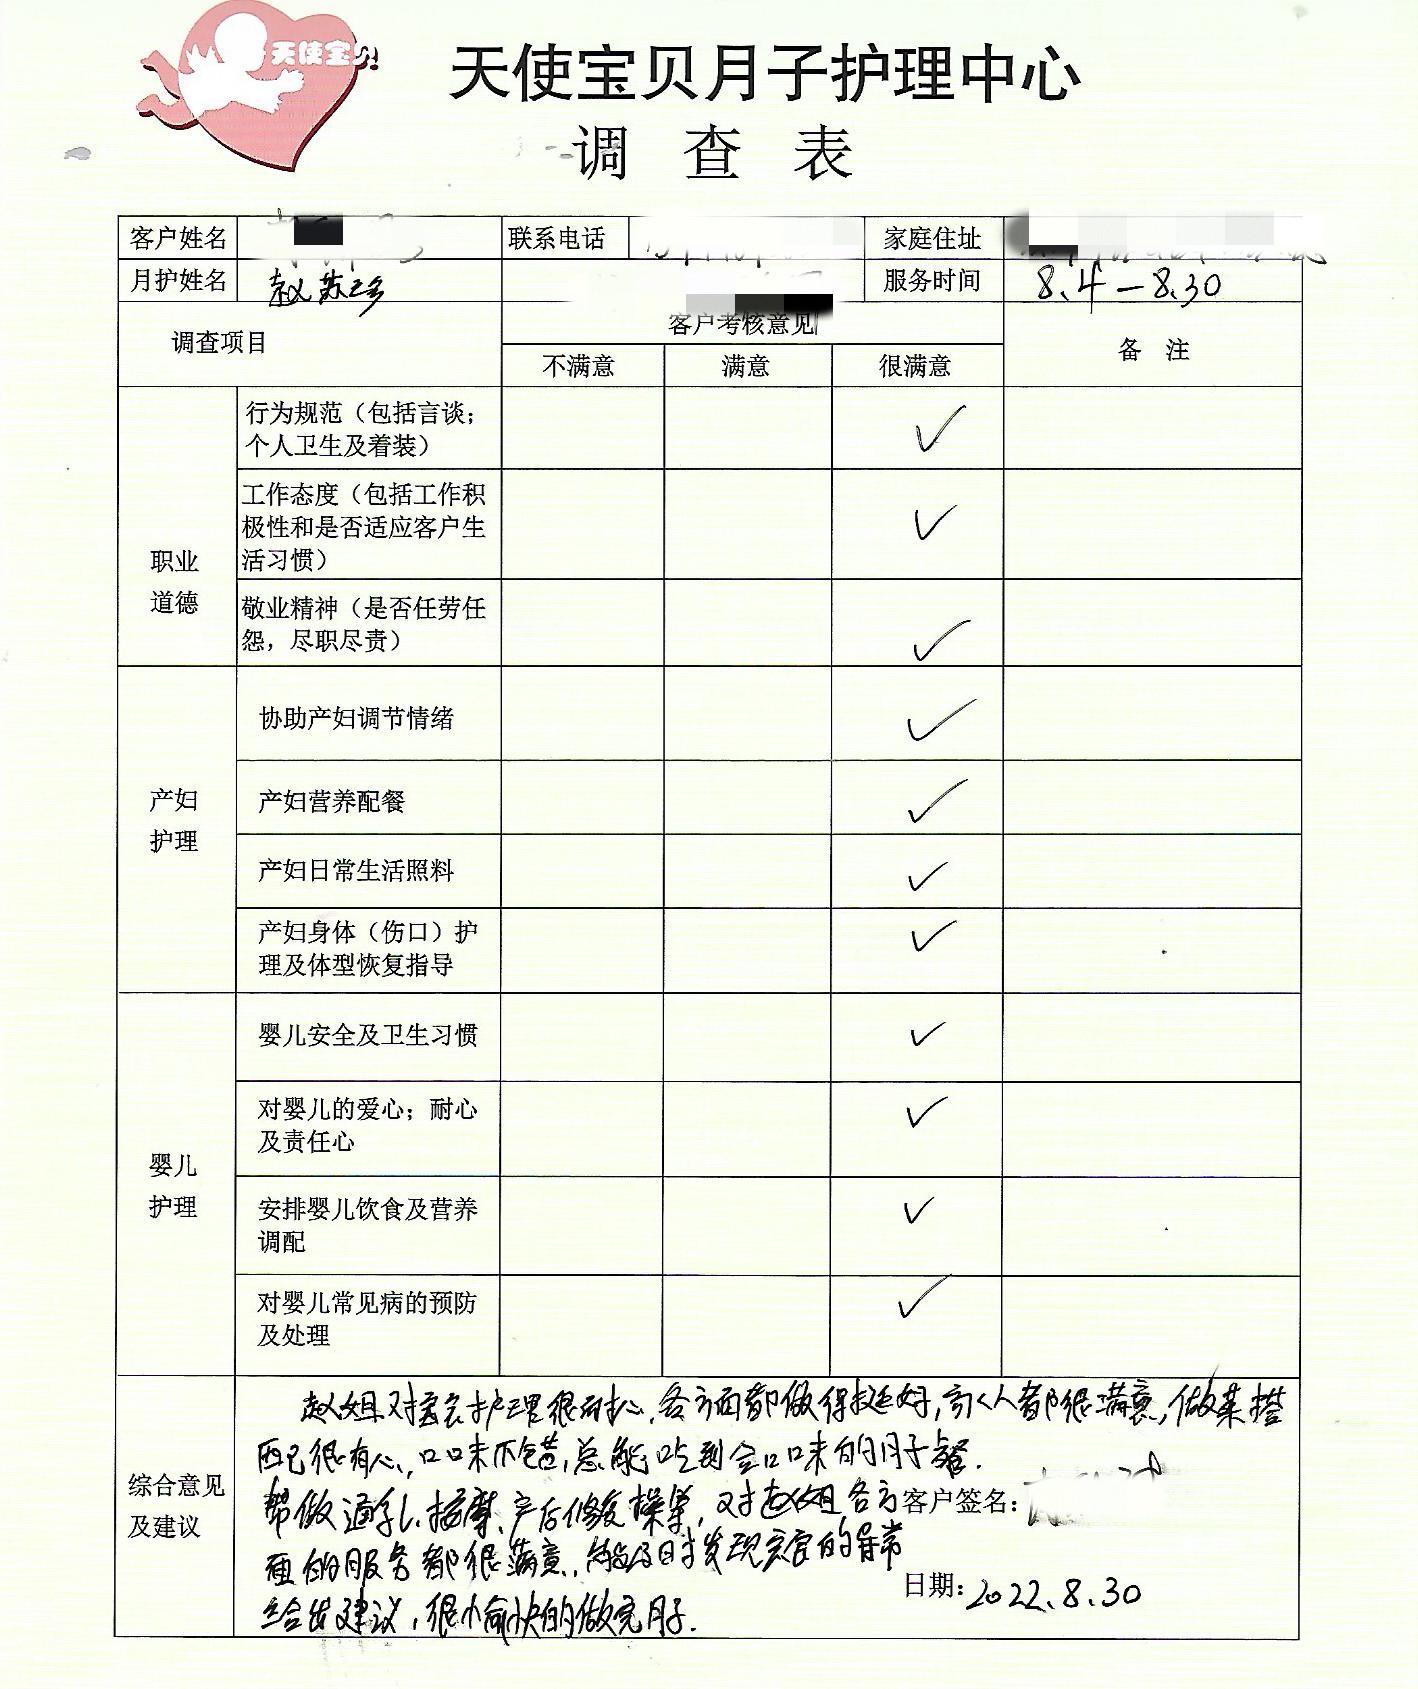 天使宝贝
天使宝贝月子护理中心
调 查 表
客户姓名 联系电话 家庭住址
月护姓名 赵苏珍 服务时间 8.4—8.30
调查项目 客户考核意见 备 注
不满意 满意 很满意
职业
道德
行为规范（包括言谈；
个人卫生及着装） ✓
工作态度（包括工作积
极性和是否适应客户生
活习惯） ✓
敬业精神（是否任劳任
怨，尽职尽责） ✓
产妇
护理
协助产妇调节情绪 ✓
产妇营养配餐 ✓
产妇日常生活照料 ✓
产妇身体（伤口）护
理及体型恢复指导 ✓
婴儿
护理
婴儿安全及卫生习惯 ✓
对婴儿的爱心；耐心
及责任心 ✓
安排婴儿饮食及营养
调配 ✓
对婴儿常见病的预防
及处理 ✓
综合意见
及建议
赵姐对宝宝护理很耐心，各方面都做得挺好，家人都很满意，做菜搭
配也很有心，口味不错，总能吃到合口味的月子餐.
帮做通乳、按摩、产后修复操等，对赵姐各方
面的服务都很满意，能及时发现宝宝的异常
给出建议，很愉快的做完月子.
客户签名：
日期：2022.8.30